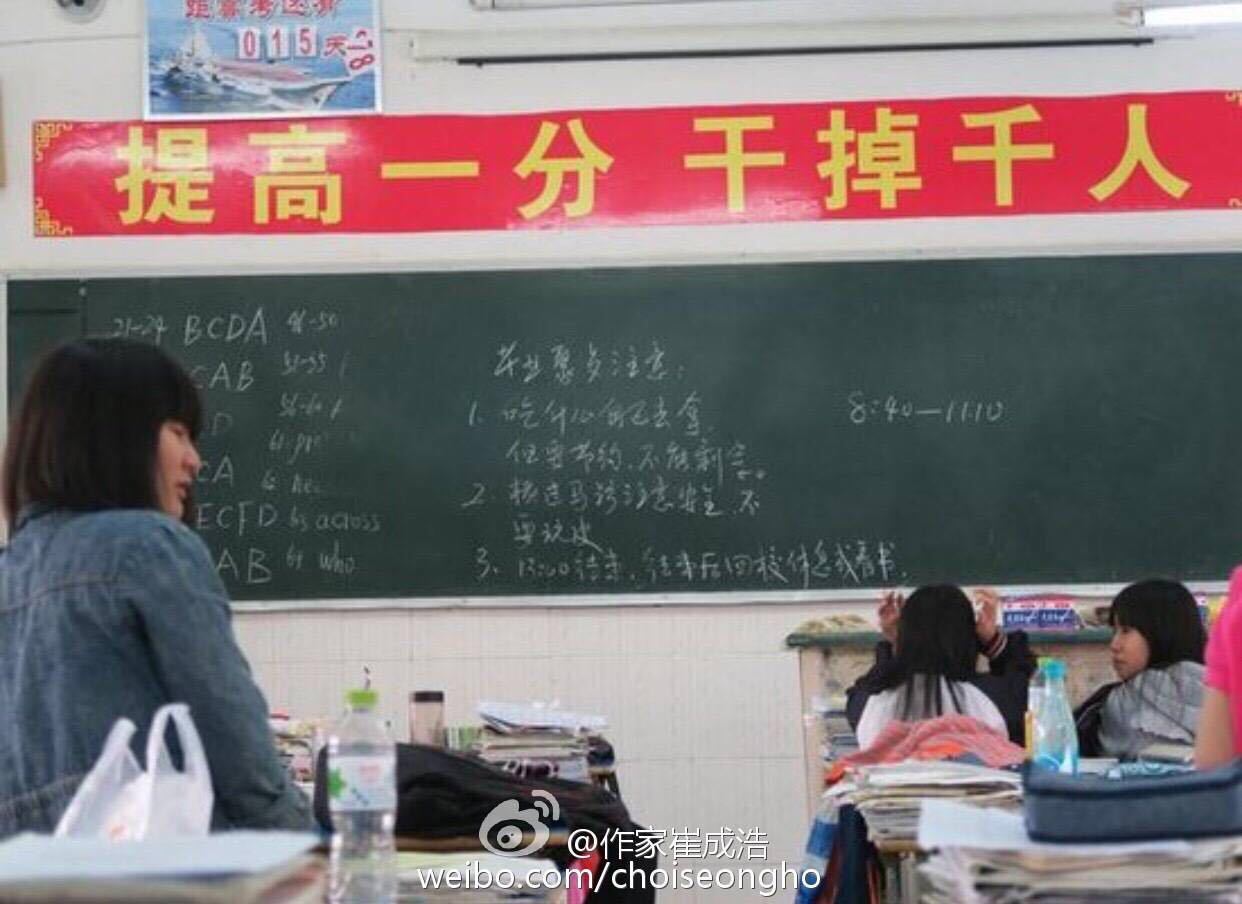 距高考还有
015天
提高一分 干掉千人
21-24 BCDA 46-50
CAB 51-55
D 56-60
CA
ECFD 65 across
AB 67 who
毕业聚餐注意:
1. 吃什么自己去拿,
但要节约,不能剩完。
2. 横过马路注意安全,不
要玩皮
3. 13:00结束,结束后回校休息或看书.
8:40—11:10
@作家崔成浩
weibo.com/choiseongho